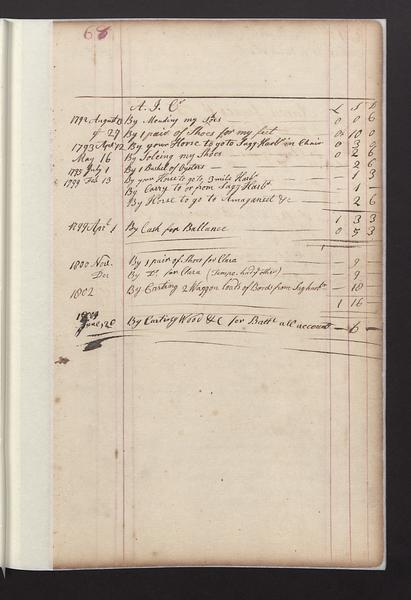 68
A. I. Cr. L S D
1792 August 13 By Mending my Shoes — 0 0 6
27 By 1 pair of Shoes for my feet 0 10 0
1793 Apr 12 By your Horse to go to Sagg Harbr in Chair 0 3 0
May 16 By Soleing my Shoes — 0 2 6
1795 July 1 By 1 Bushel of Oysters — 2 6
1799 Feb 13 By your Horse to go to 3 mile Harbr — 1 3
By Carry to or from Sagg Harbr — 1 —
By Horse to go to Amaganset &c — 2 6
1 3 3
1799 Apr 1 By Cash for Ballance 0 5 3
1800 Nov. By 1 pair of Shoes for Clara — 9 —
Dec By Do for Clara — 9 —
1802 By Carting 2 Waggon loads of Bords from Sag harbr — 18
1 16 —
1804
June 28 By Carting Wood &c for Balle all account — 6 —